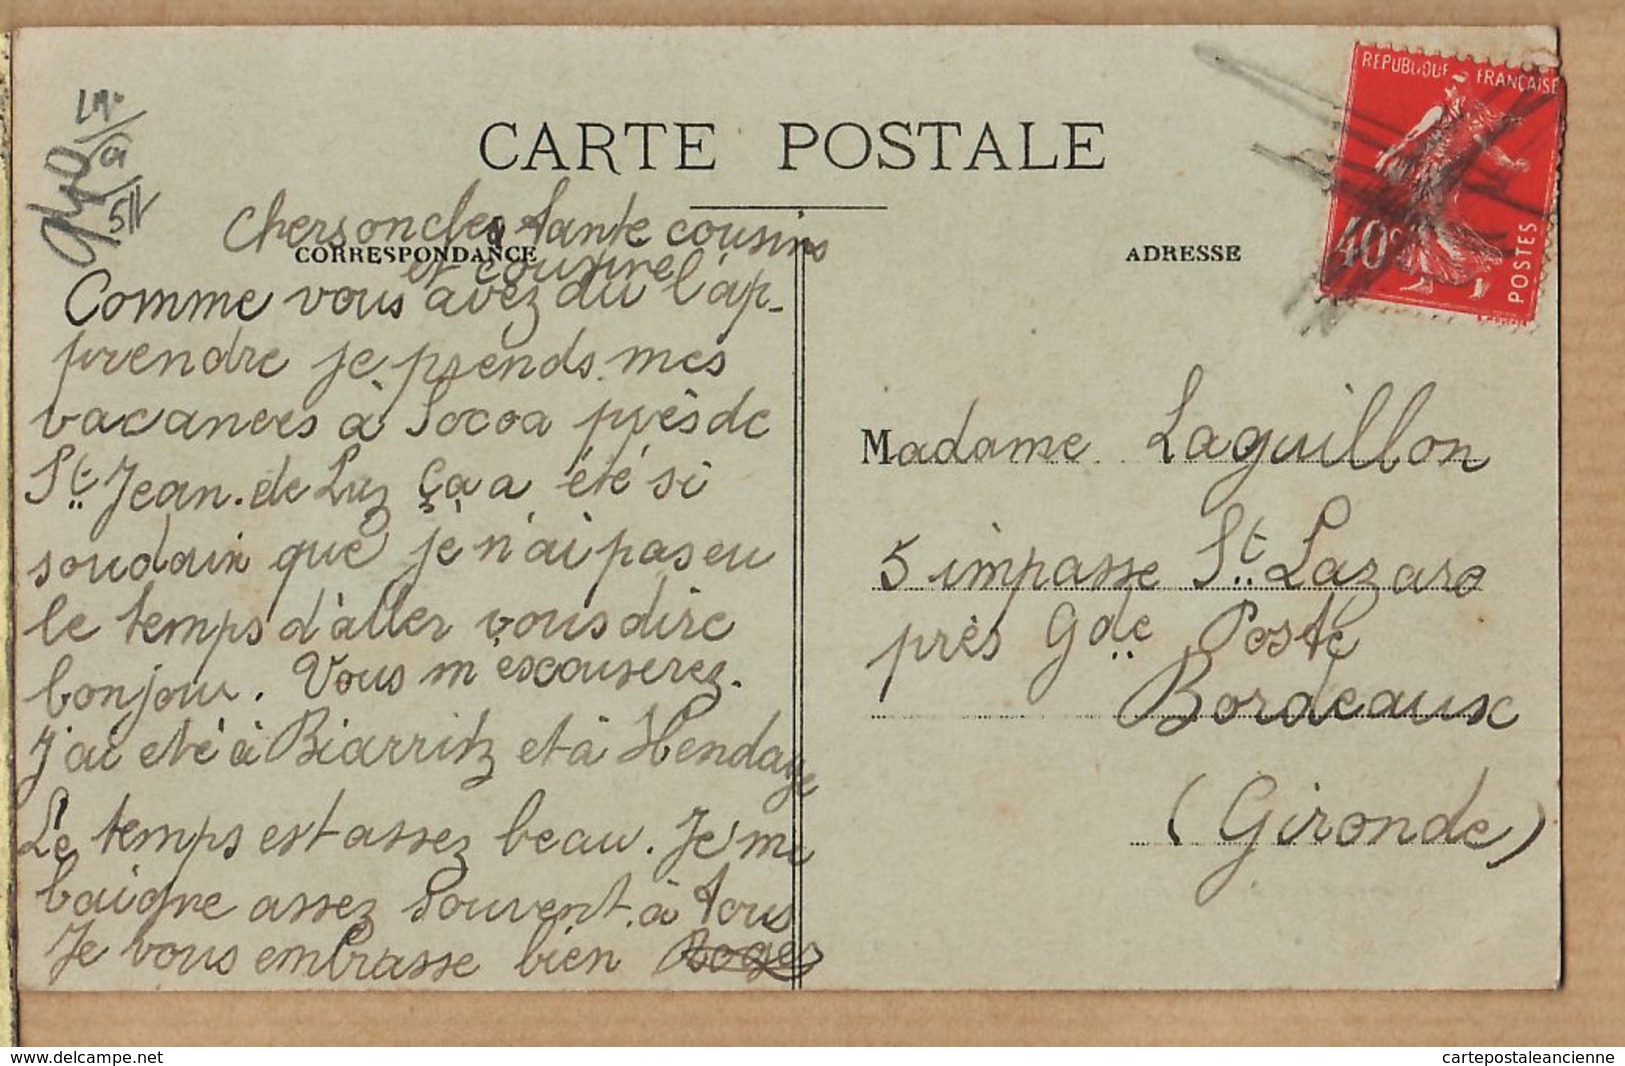 CARTE POSTALE
CORRESPONDANCE
Chers oncles tante cousins
et cousine
Comme vous avez du l'ap-
prendre je prends mes
vacances à Socoa près de
St Jean. de Luz ça a été si
soudain que je n'ai pas eu
le temps d'aller vous dire
bonjour. Vous m'escouserez.
J'ai eté à Biarritz et à Hendaye
Le temps est assez beau. Je me
baigne assez souvent. à tous
Je vous embrasse bien Roger
ADRESSE
REPUBLIQUE FRANÇAISE
40c
POSTES
Madame Laguillon
5 impasse St. Lazare
près Gde Poste
Bordeaux
(Gironde)
www.delcampe.net
cartepostaleancienne